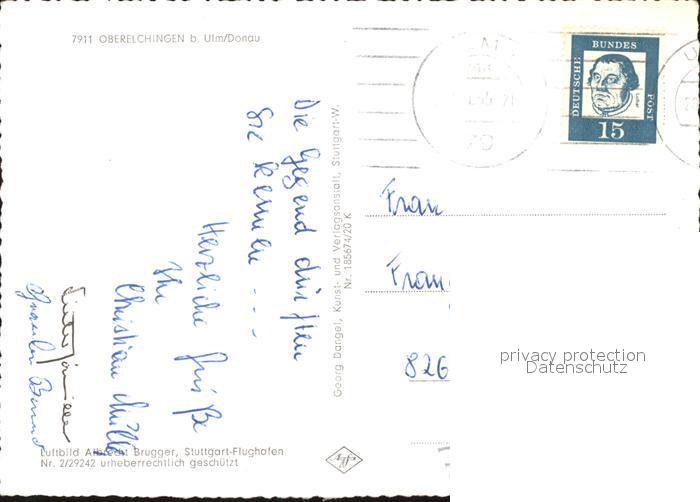 7911 OBERELCHINGEN b. Ulm/Donau
Die Gegend dürften
Sie kennen - - -
Herzliche Grüße
Ihr
Christian Müll
Georg Dangel, Kunst- und Verlagsanstalt, Stuttgart-W.
Nr. 185674/20 K
Luftbild Albrecht Brugger, Stuttgart-Flughafen
Nr. 2/29242 urheberrechtlich geschützt
DEUTSCHE
BUNDES
POST
15
Frau
Fran
826
privacy protection
Datenschutz